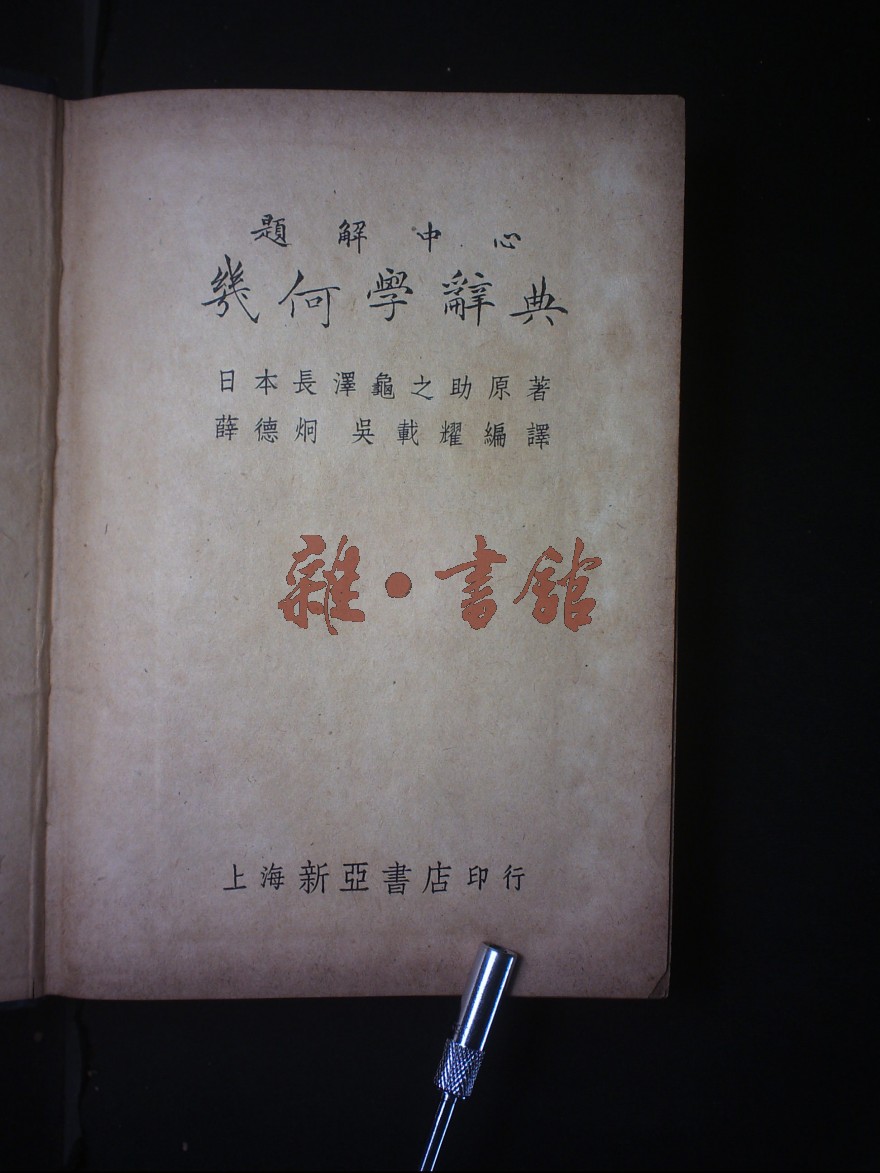 題解中心
幾何學辭典
日本長澤龜之助原著
薛德炯 吳載耀編譯
雜·書館
上海新亞書店印行